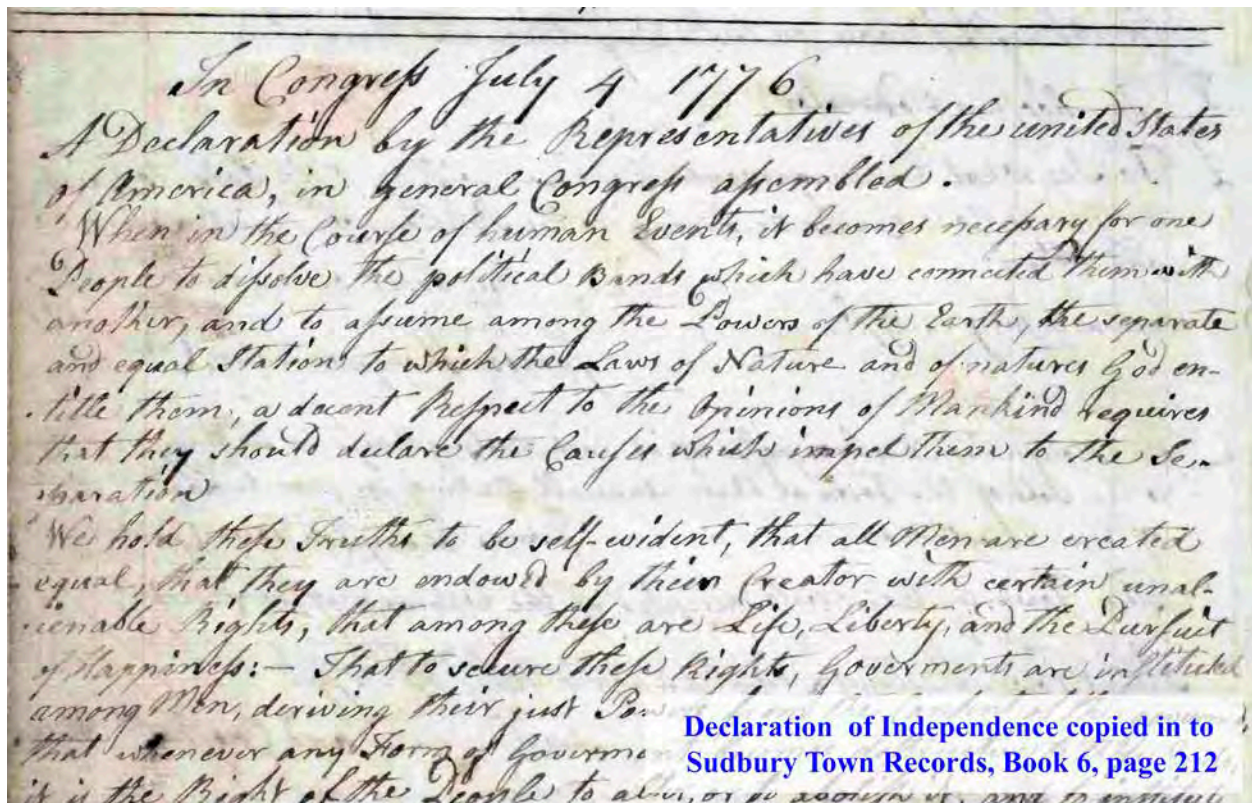 In Congress July 4 1776
A Declaration by the Representatives of the united States
of America, in general Congress assembled.
When in the Course of human Events, it becomes necessary for one
People to dissolve the political Bands which have connected them with
another, and to assume among the Powers of the Earth, the separate
and equal Station to which the Laws of Nature and of natures God en-
title them, a decent Respect to the Opinions of Mankind requires
that they should declare the Causes which impel them to the Se-
paration
We hold these Truths to be self-evident, that all Men are created
equal, that they are endowed by their Creator with certain unal-
ienable Rights, that among these are Life, Liberty, and the Pursuit
of Happiness:— That to secure these Rights, Goverments are instituted
among Men, deriving their just
that whenever any Form of
it is the Right of the People to
Declaration of Independence copied in to
Sudbury Town Records, Book 6, page 212